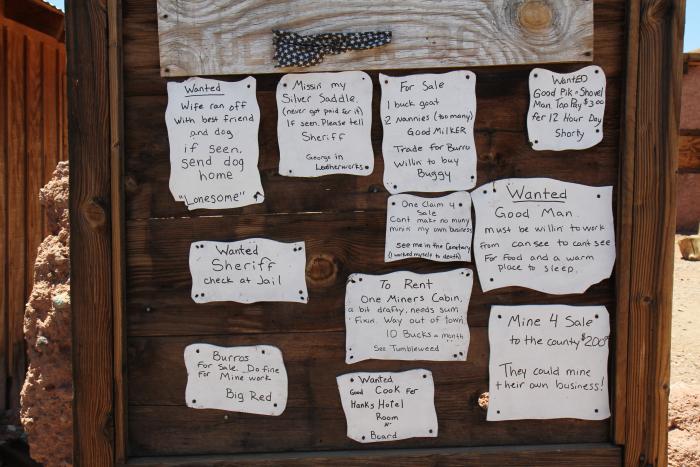 Wanted
Wife ran off
With best friend
and dog
if seen,
send dog
home
"Lonesome"
Missin my
Silver Saddle.
(never got paid for it)
If seen, Please tell
Sheriff
George in
Leatherworks
For Sale
1 buck goat
2 Nannies (too many)
Good MilKER
Trade for Burro
willin to buy
Buggy
WantED
Good Pik n Shovel
Man Top Pay $3.00
fer 12 Hour Day
Shorty
One Claim 4
Sale
Cant make no muny
minin my own business
See me in the Cemetary
(I worked myself to death)
Wanted
Good Man
must be willin to work
from can see to cant see
For Food and a warm
place to sleep.
Wanted
Sheriff
check at Jail
To Rent
One Miners Cabin,
a bit drafty, needs sum
Fixin. Way out of town
10 Bucks a month
See Tumbleweed
Mine 4 Sale
to the county $200
They could mine
their own business!
Burros
For Sale. Do fine
For Mine work
Big Red
Wanted
Good Cook Fer
Hanks Hotel
Room
N'
Board